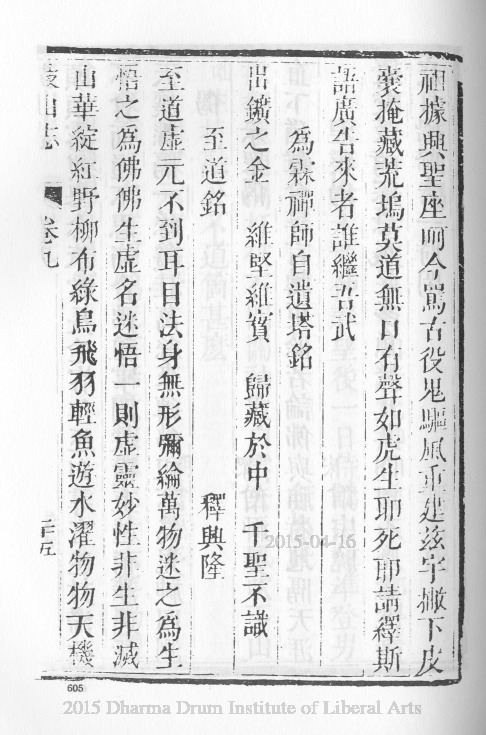 祖據興聖座呵今罵古役鬼驅風重建茲宇撇下皮
囊掩藏荒塢莫道無口有聲如虎生耶死耶請繹斯
語廣告來者誰繼吾武
為霖禪師自遺塔銘
出鑛之金 維堅維賓 歸藏於中 千聖不識
至道銘 釋興隆
至道虛元不到耳目法身無形彌綸萬物迷之為生
悟之為佛佛生虛名迷悟一則虛靈妙性非生非滅
山華綻紅野柳布綠鳥飛羽輕魚遊水濯物物天機
山志 卷九 二十五
2015-04-16
605
2015 Dharma Drum Institute of Liberal Arts